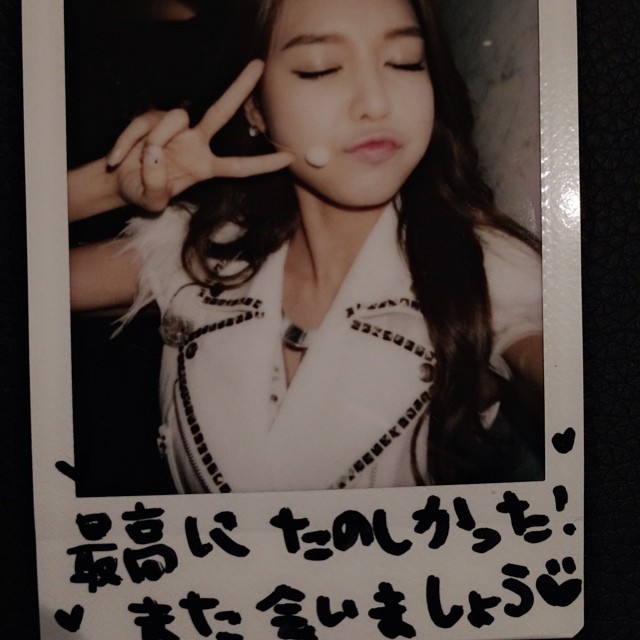 最高に たのしかった!
また会いましょう